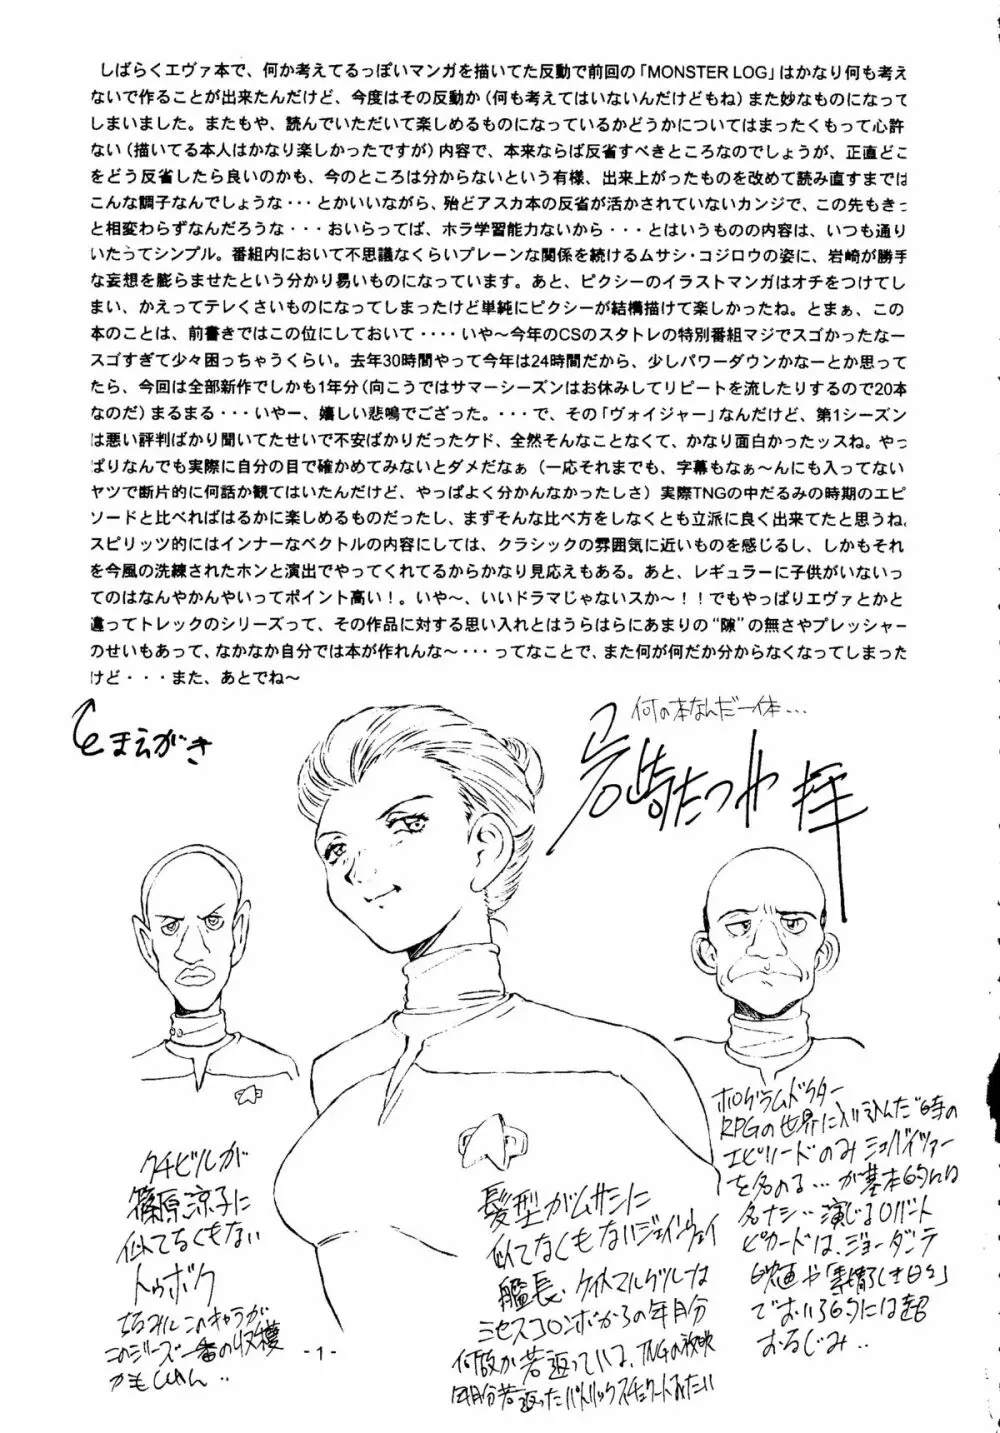 しばらくエヴァ本で、何か考えてるっぽいマンガを描いてた反動で前回の「MONSTER LOG」はかなり何も考え
ないで作ることが出来たんだけど、今度はその反動か(何も考えてはいないんだけどもね)また妙なものになって
しまいました。またもや、読んでいただいて楽しめるものになっているかどうかについてはまったくもって心許
ない(描いてる本人はかなり楽しかったですが)内容で、本来ならば反省すべきところなのでしょうが、正直どこ
をどう反省したら良いのかも、今のところは分からないという有様、出来上がったものを改めて読み直すまでは
こんな調子なんでしょうな・・・とかいいながら、殆どアスカ本の反省が活かされていないカンジで、この先もきっ
と相変わらずなんだろうな・・・おいらってば、ホラ学習能力ないから・・・とはいうものの内容は、いつも通り
いたってシンプル。番組内において不思議なくらいプレーンな関係を続けるムサシ・コジロウの姿に、岩崎が勝手
な妄想を膨らませたという分かり易いものになっています。あと、ピクシーのイラストマンガはオチをつけてし
まい、かえってテレくさいものになってしまったけど単純にピクシーが結構描けて楽しかったね。とまぁ、この
本のことは、前書きではこの位にしておいて・・・・いや〜今年のCSのスタトレの特別番組マジでスゴかったなー
スゴすぎて少々困っちゃうくらい。去年30時間やって今年は24時間だから、少しパワーダウンかなーとか思って
たら、今回は全部新作でしかも1年分(向こうではサマーシーズンはお休みしてリピートを流したりするので20本
なのだ)まるまる・・・いやー、嬉しい悲鳴でござった。・・・で、その「ヴォイジャー」なんだけど、第1シーズン
は悪い評判ばかり聞いてたせいで不安ばかりだったケド、全然そんなことなくて、かなり面白かったッスね。やっ
ぱりなんでも実際に自分の目で確かめてみないとダメだなぁ(一応それまでも、字幕もなぁ〜んにも入ってない
ヤツで断片的に何話か観てはいたんだけど、やっぱよく分かんなかったしさ)実際TNGの中だるみの時期のエピ
ソードと比べればはるかに楽しめるものだったし、まずそんな比べ方をしなくとも立派に良く出来てたと思うね。
スピリッツ的にはインナーなベクトルの内容にしては、クラシックの雰囲気に近いものを感じるし、しかもそれ
を今風の洗練されたホンと演出でやってくれてるからかなり見応えもある。あと、レギュラーに子供がいないっ
てのはなんやかんやいってポイント高い!。いや〜、いいドラマじゃないスか〜!!でもやっぱりエヴァとかと
違ってトレックのシリーズって、その作品に対する思い入れとはうらはらにあまりの“隙”の無さやプレッシャー
のせいもあって、なかなか自分では本が作れんな〜・・・ってなことで、また何が何だか分からなくなってしまった
けど・・・また、あとでね〜
とまえがき
何の本なんだ一体...
岩崎たつや 拝
クチビルが
篠原涼子に
似てなくもない
トゥボク
ちなみに このキャラが
このシリーズ一番の収穫
かもしれん..
髪型がムサシに
似てなくもないジェインウェイ
艦長、ケイトマルグルーは
ミセスコロンボからの年月分
何故か若返っている、TNGの放映
年月分若返ったパトリックスチュワートみたい
ホログラムドクター
RPGの世界に入り込んだ時の
エピソードのみ シュバイツァー
を名のる...が基本的には
名ナシ..演じるロバート
ピカードは、ジョーダンテ
映画や「素晴らしき日々」
でおいら的には超
おなじみ..
- 1 -